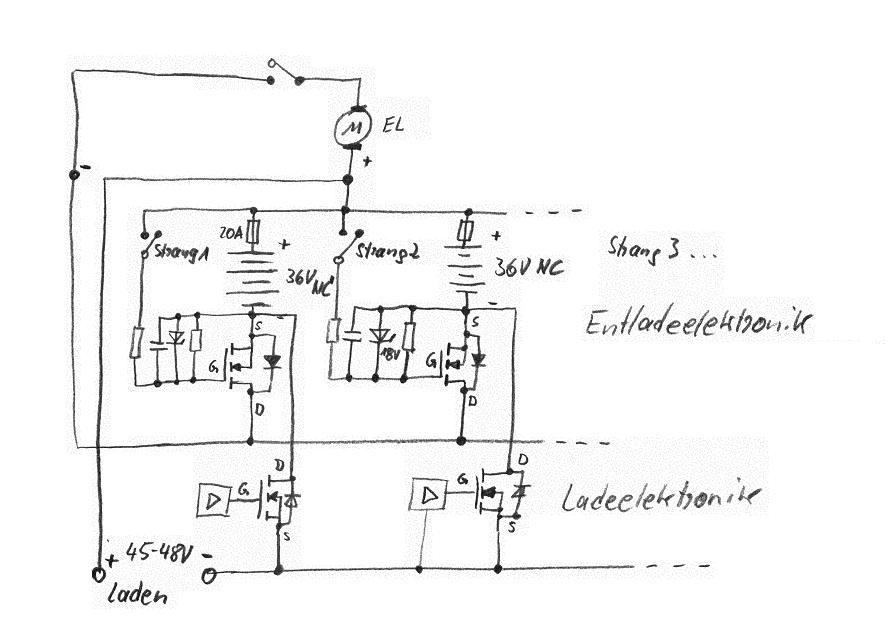 M EL
+
-
20A
+
+
Strang 1
Strang 2
Strang 3 ...
36V NC
36V NC
-
-
Entladeelektronik
S
S
18V
G
G
D
D
D
D
G
G
Ladeelektronik
S
S
+ 45-48V -
Laden